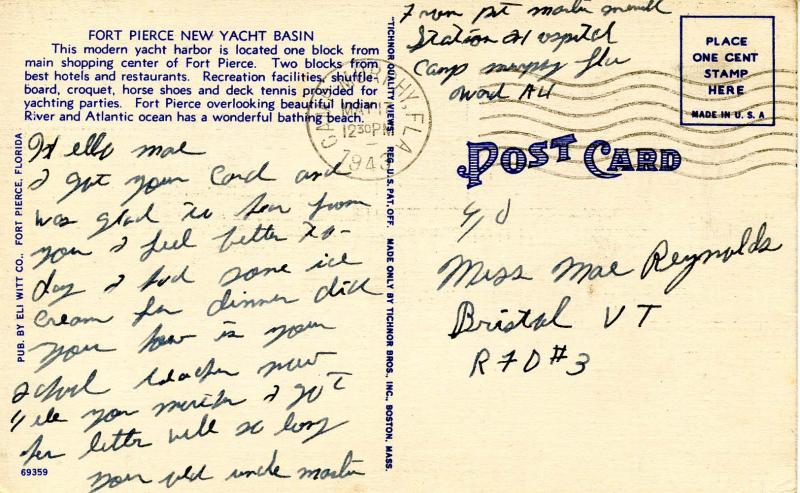 FORT PIERCE NEW YACHT BASIN
This modern yacht harbor is located one block from
main shopping center of Fort Pierce. Two blocks from
best hotels and restaurants. Recreation facilities, shuffle-
board, croquet, horse shoes and deck tennis provided for
yachting parties. Fort Pierce overlooking beautiful Indian
River and Atlantic ocean has a wonderful bathing beach.
Hello mae
I got your Card and
was glad to hear from
you I feel better to-
day I had some ice
cream for dinner did
you how is your
School teacher now
tell your mother I got
her letter well so long
your old uncle martin
69359
PUB. BY ELI WITT CO., FORT PIERCE, FLORIDA
"TICHNOR QUALITY VIEWS," REG. U.S. PAT. OFF. MADE ONLY BY TICHNOR BROS., INC., BOSTON, MASS.
From pvt martin
Station Hospital
Camp murphy fla
Word A4
CAMP MURPHY, FLA
MAY
12 30 PM
1943
PLACE
ONE CENT
STAMP
HERE
MADE IN U.S.A
POST CARD
To
Miss Mae Reynolds
Bristol VT
RFD #3